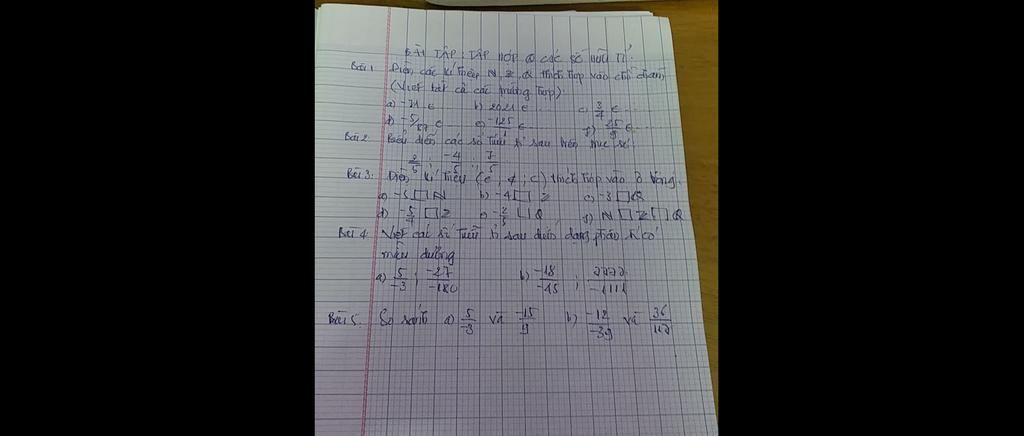 BÀI TẬP: TẬP HỢP Q CÁC SỐ HỮU TỈ
Bài 1 Điền các kí hiệu N, Z, Q thích hợp vào chỗ chấm
(Viết tất cả các trường hợp)
a) -31 ∈ ... b) 2021 ∈ ... c) 3/7 ∈ ...
d) ∈ ... e) -125/1 ∈ ... f) 25/9 ∈ ...
Bài 2. Biểu diễn các số hữu tỉ sau trên trục số
2/5 ; -4/5 ; 7/5
Bài 3: Điền kí hiệu (∈, ∉, ⊂) thích hợp vào ô trống.
a) -5 □ N b) -4 □ Z c) -3 □ Q
d) -5/7 □ Z e) □ Q f) N □ Z □ Q
Bài 4 Viết các số hữu tỉ sau dưới dạng phân số có
mẫu dương
a) 5/-3 ; -27/-180 b) -18/-45 ; 7777/-1111
Bài 5. So sánh a) 5/-3 và -15/9 b) -12/-39 và 36/117